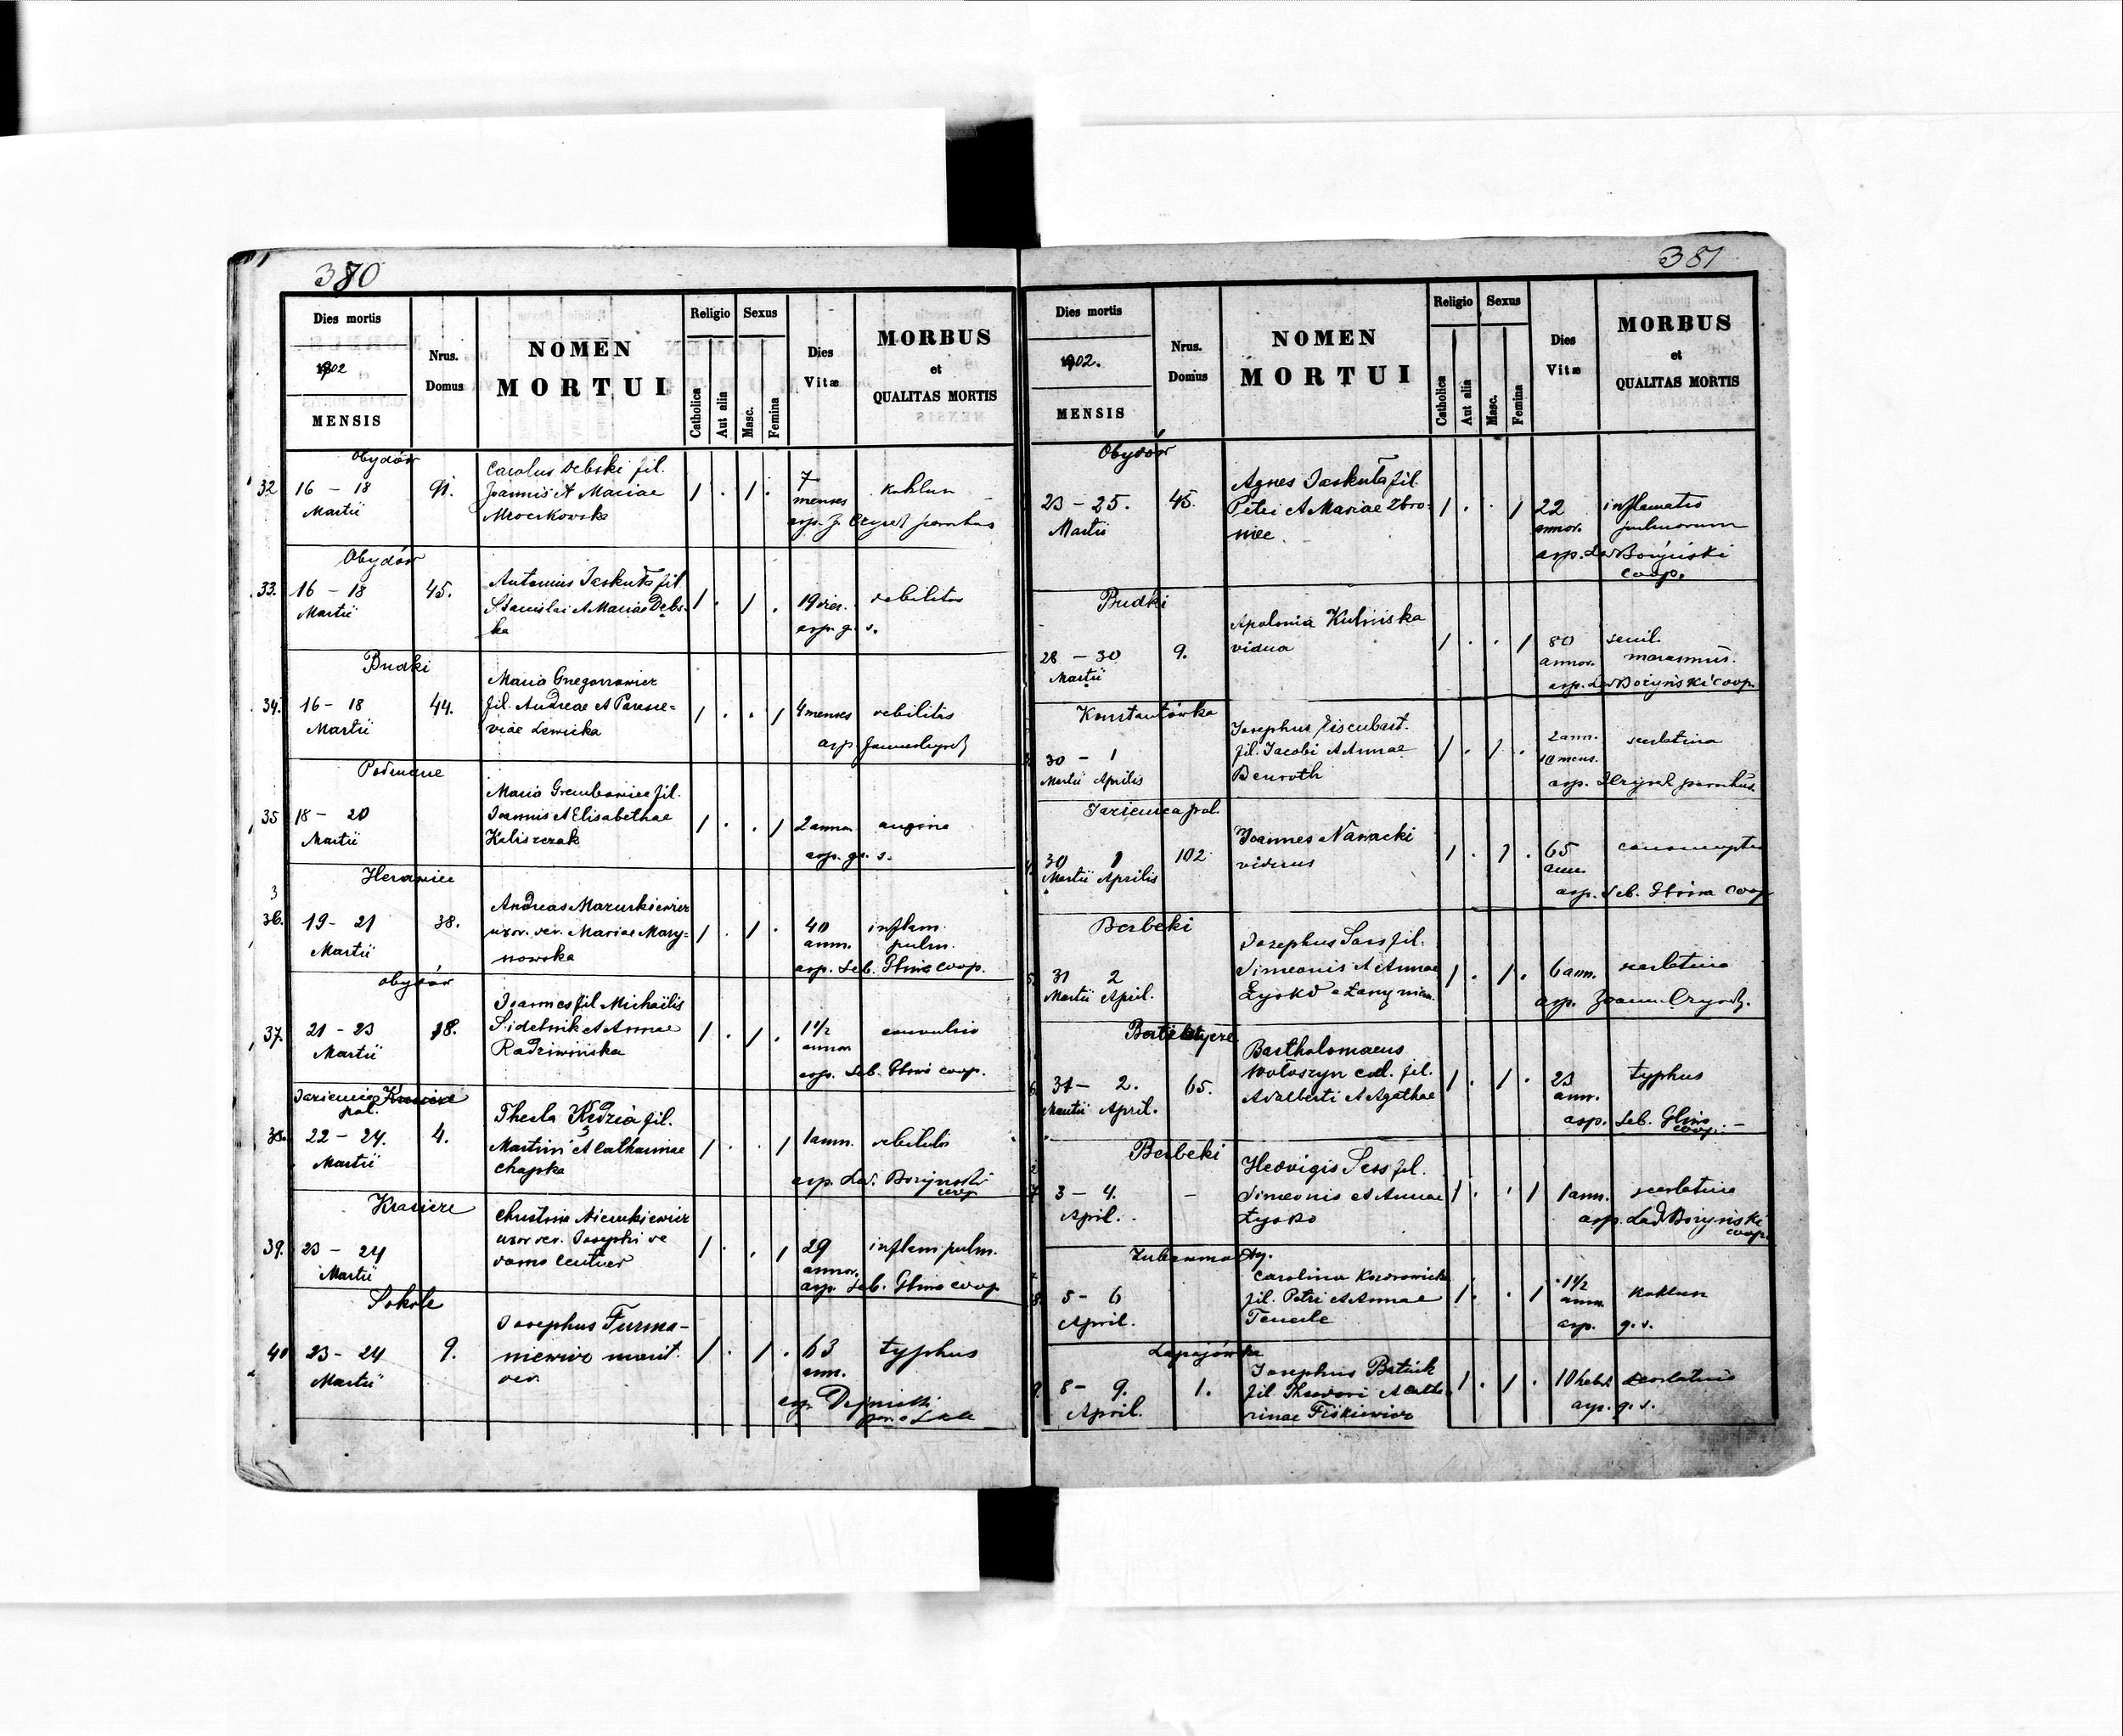 380
Dies mortis
1902
MENSIS
Nrus.
Domus
NOMEN
MORTUI
Religio
Catholica
Aut alia
Sexus
Masc.
Femina
Dies
Vitæ
MORBUS
et
QUALITAS MORTIS
Obydów
32 16 - 18 91. Carolus Debski fil. 1 . 1 . 7
Martii Joannis et Mariae menses kohlun
Mroczkowska asp. J. Czyrek parochus
Obydów
33. 16 - 18 45. Antonius Jaskuła fil. 1 . 1 . 19 dies. debilitas
Martii Stanislai et Mariae Debs-
ka asp. q. s.
Budki
34. 16 - 18 44. Maria Gregorowicz 1 . . 1 4 menses debilitas
Martii fil. Andreae et Paresce=
viae Lewicka asp.
35 18 - 20 Maria Grembowicz fil. 1 . . 1 2 annor. angina
Martii Joannis et Elisabethae
Kaliszczak asp. q. s.
36. 19 - 21 38. Andreas Mazurkiewicz 1 . 1 . 40 inflam.
Martii uxor. der. Mariae Mary= ann. pulm.
nowska asp. Seb. Glins coop.
Obydów
37. 21 - 23 18. Joannes fil. Michaëlis 1 . 1 . 1 1/2 convulsio
Martii Sidelnik et Annae annor.
Radziwińska asp. Seb. Glins coop.
pol.
38. 22 - 24. 4. Thecla Kędzia fil. 1 . . 1 1 ann. debilitas
Martii Martini et Catharinae
Chapka asp. Lad. Bożyński
coop.
Krasicze
39. 23 - 24 Christina 1 . . 1 29 inflam. pulm.
Martii uxor der. Josephi de annor.
domo Centner asp. Seb. Glins coop.
Sokole
40 23 - 24 9. Josephus Furma- 1 . 1 . 63 typhus
Martii niewicz marit. ann.
der.
381
Dies mortis
1902.
MENSIS
Nrus.
Domus
NOMEN
MORTUI
Religio
Catholica
Aut alia
Sexus
Masc.
Femina
Dies
Vitæ
MORBUS
et
QUALITAS MORTIS
Obydów
23 - 25. 45. Agnes Jaskuła fil. 1 . . 1 22 inflamatio
Martii Petri et Mariae Zbro- annor. pulmorum
niec. asp. Lad Bożyński
coop.
Budki
28 - 30 9. Apolonia Kulniska 1 . . 1 80 senil.
Martii vidua annor. marasmus.
asp. Lad Bożyński coop.
Konstantówka
30 - 1 Josephus 1 . 1 . 2 ann. scarlatina
Martii Aprilis fil. Jacobi et Annae 10 mens.
Benroth asp. J Czyrek parochus.
Jazienica pol.
30 1 102 Joannes Nawacki 1 . 1 . 65
Martii Aprilis viduus ann.
asp. Seb. Glins coop
Berbeki
31 2 Josephus Sass fil. 1 . 1 . 6 ann. scarlatina
Martii April. Simeonis et Annae
Łysko asp.
31 - 2. 65. Bartholomaeus 1 . 1 . 23 typhus
Martii April. Wołoszyn cael. fil. ann.
Adalberti et Agathae asp. Seb. Glins
coop.
Berbeki
3 - 4. - Hedvigis Sass fil. 1 . . 1 1 ann. scarlatina
April. Simeonis et Annae
Łysko asp. Lad Bożyński
coop.
5 - 6 Carolina 1 . . 1 1 1/2 koklun
April. fil. Petri et Annae ann.
Tenerle asp. q. s.
Łapajówka
8 - 9. 1. Josephus Batiuk 1 . 1 . 10 hebd. scarlatina
April. fil. Theodori et Catha-
rinae Fiskiewicz asp. q. s.